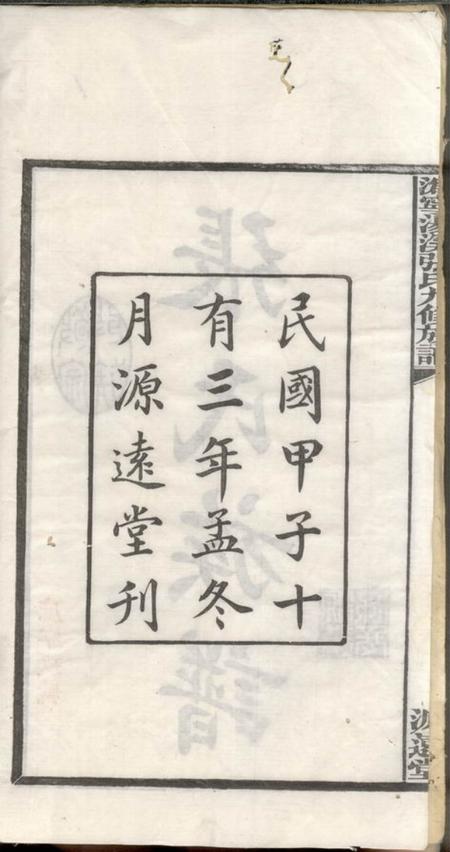 民國甲子十
有三年孟冬
月源遠堂刊
張氏族譜
源遠堂